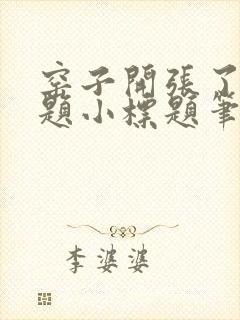 窑子開張了
題小標題筆
李婆婆